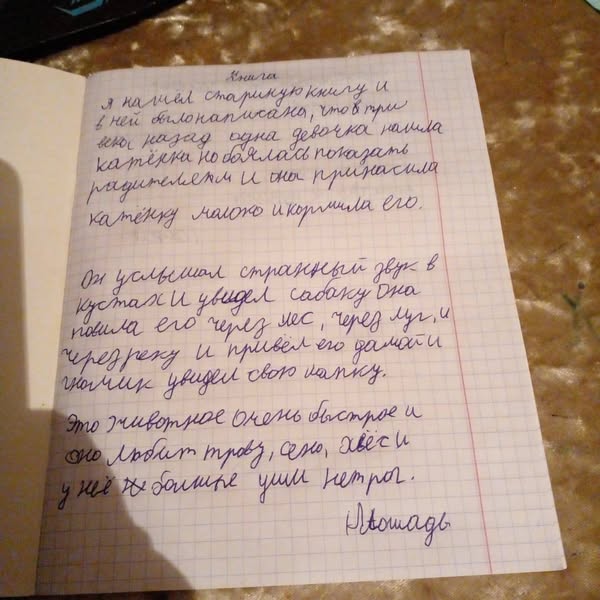 Книга
я нашёл стариную книгу и
в ней было написана, что в три
века назад одна девочка нашла
катёнка но боялась показать
радителям и она принасила
катёнку малоко и кормила его.
Он услышал странный звук в
кустах и увидел сабаку она
повила его через лес, через луг, и
через реку и привёл его дамой и
гномик увидел свою мапку.
Это животное очень быстрое и
оно любит траву, сено, хлёс и
у неё не большие уши нет рог.
Лошадь